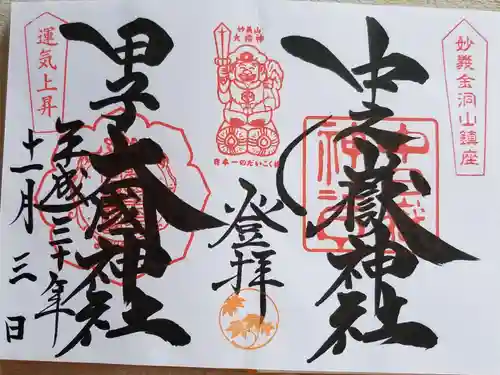 妙義金洞山鎮座
中之嶽神社
中之嶽神社
妙義山
日本一のだいこく様
登拝
甲子大國神社
運気上昇
平成三十年
十一月三日